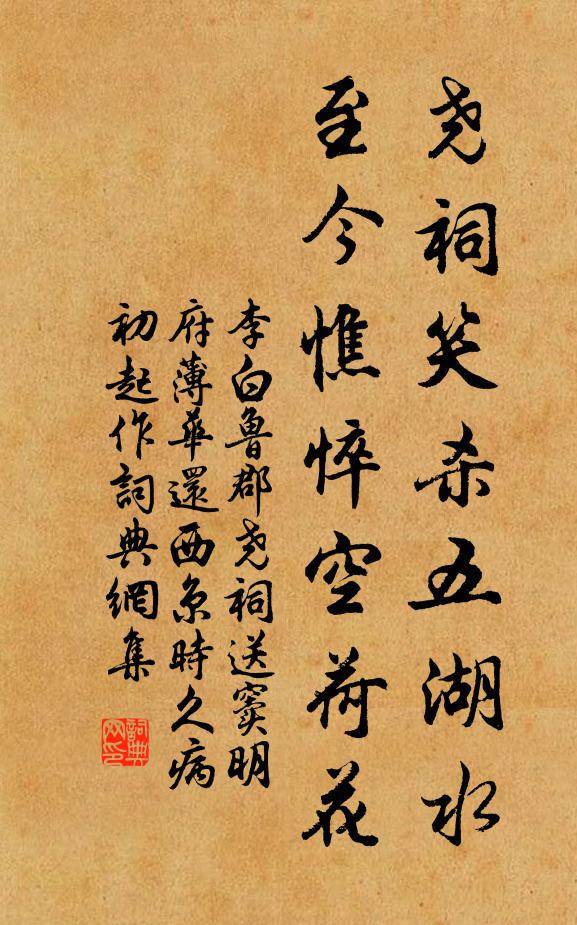 尧祠笑杀五湖水
至今憔悴空荷花
李白鲁郡尧祠送窦明
府薄華還西京時久病
初起作詞典網集
詞典
网印